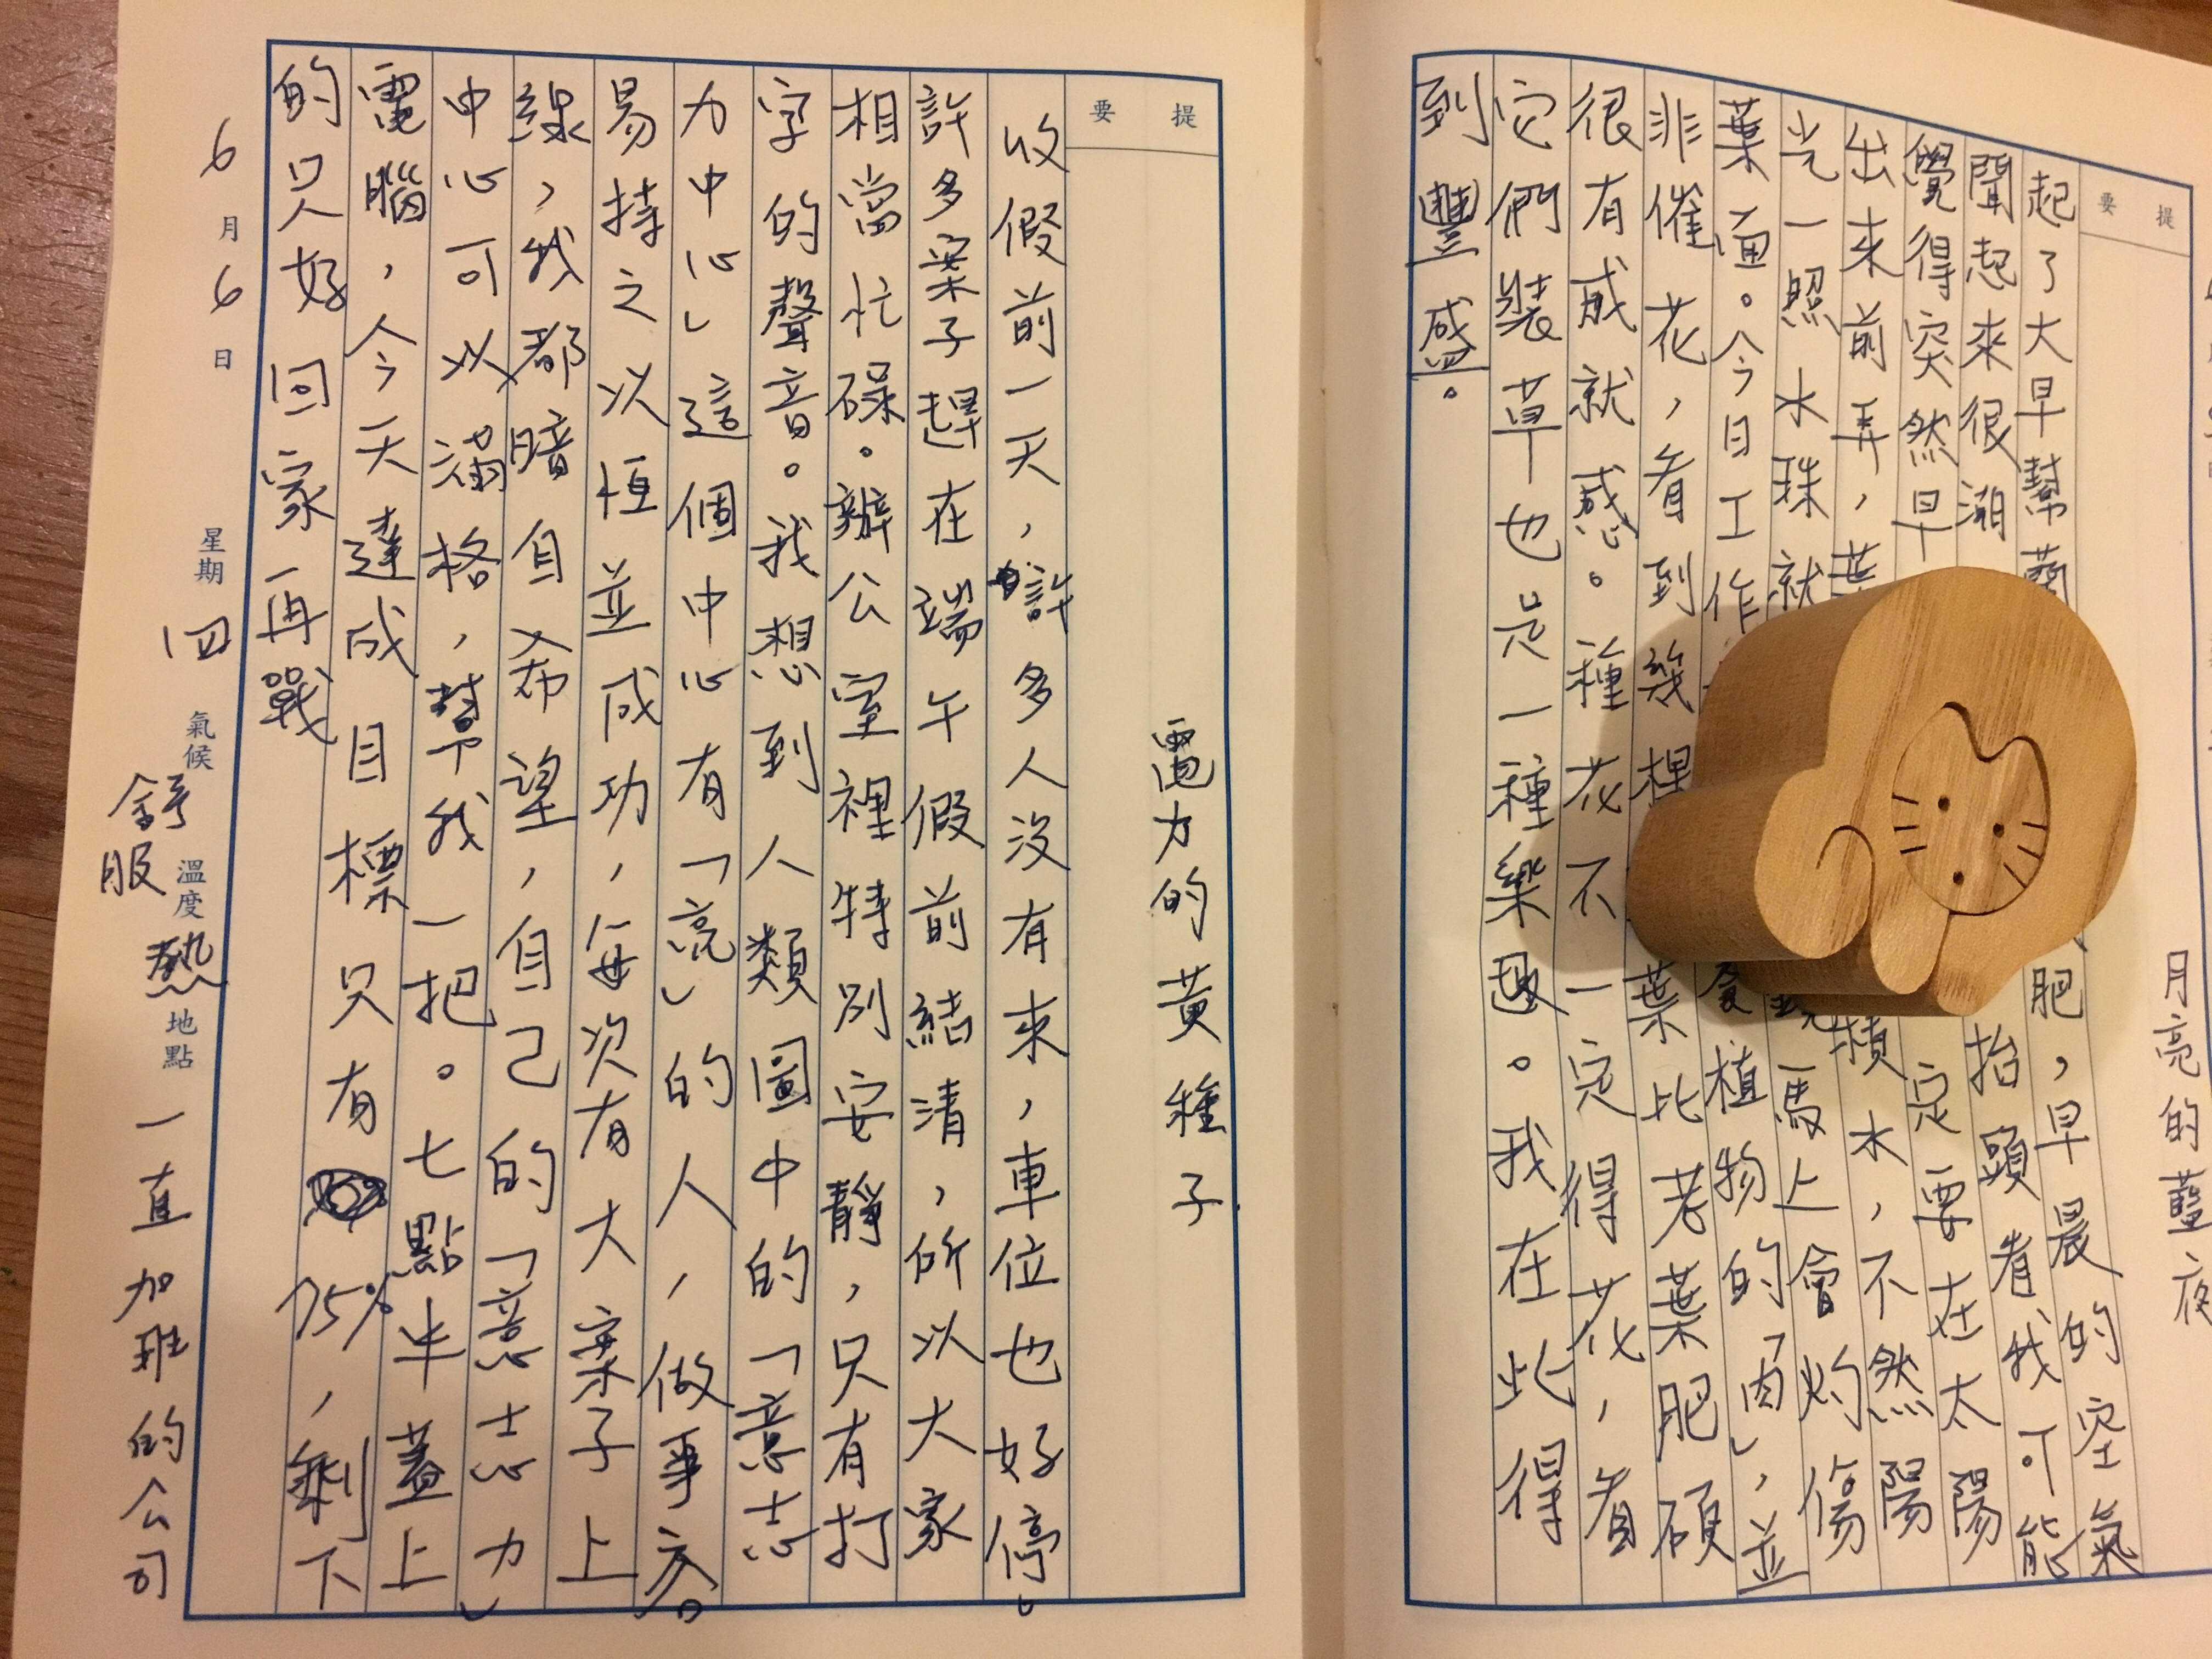 提要
月亮的藍夜
起了大早幫蘭 肥，早晨的空氣
聞起來很潮 抬頭看我可能
覺得突然早 定要在太陽
出來前弄，葉 積水，不然陽
光一照水珠就 馬上會灼傷
葉面。今日工作 植物的「肉」，並
非催花，看到幾棵 葉比老葉肥碩
很有成就感。種花不一定得花，看
它們裝草也是一種樂趣。我在此得
到豐盛。
提要
電力的黃種子
收假前一天，許多人沒有來，車位也好停。
許多案子趕在端午假前結清，所以大家
相當忙碌。辦公室裡特別安靜，只有打
字的聲音。我想到人類圖中的「意志
力中心」這個中心有「亮」的人，做事容
易持之以恆並成功，每次有大案子上
線，我都暗自希望，自己的「意志力」
中心可以滿格，幫我一把。七點半蓋上
電腦，今天達成目標只有75%，剩下
的只好回家再戰
6月6日 星期四 氣候舒服 溫度熱 地點一直加班的公司